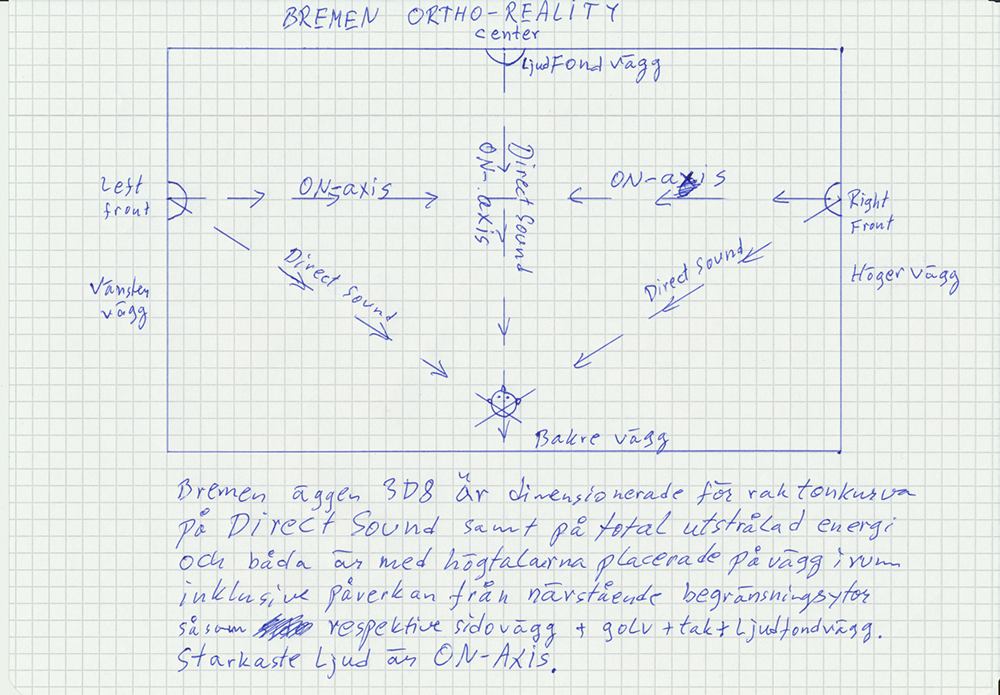 BREMEN ORTHO-REALITY
center
LjudFondvägg
Left
front
ON-axis
Direct Sound
ON-axis
ON-axis
Right
Front
Direct Sound
Direct Sound
Vänster
vägg
Höger vägg
Bakre vägg
Bremen äggen 3D8 är dimensionerade för rak tonkurva
på Direct Sound samt på total utstrålad energi
och båda är med högtalarna placerade på vägg i rum
inklusive påverkan från närstående begränsningsytor
såsom respektive sidovägg + golv + tak + Ljudfondvägg.
Starkaste Ljud är ON-AXIS.